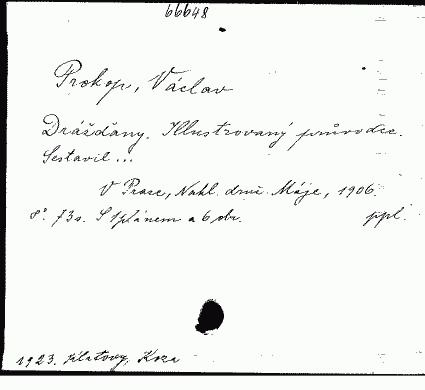 66648
Prokop, Václav
Drážďany. Illustrovaný průvodce.
Sestavil...
V Praze, Nakl. dra Máje, 1906.
8°. 73 s. S 1 plánem a 6 obr. ppl.
1923. Klatovy, Koza